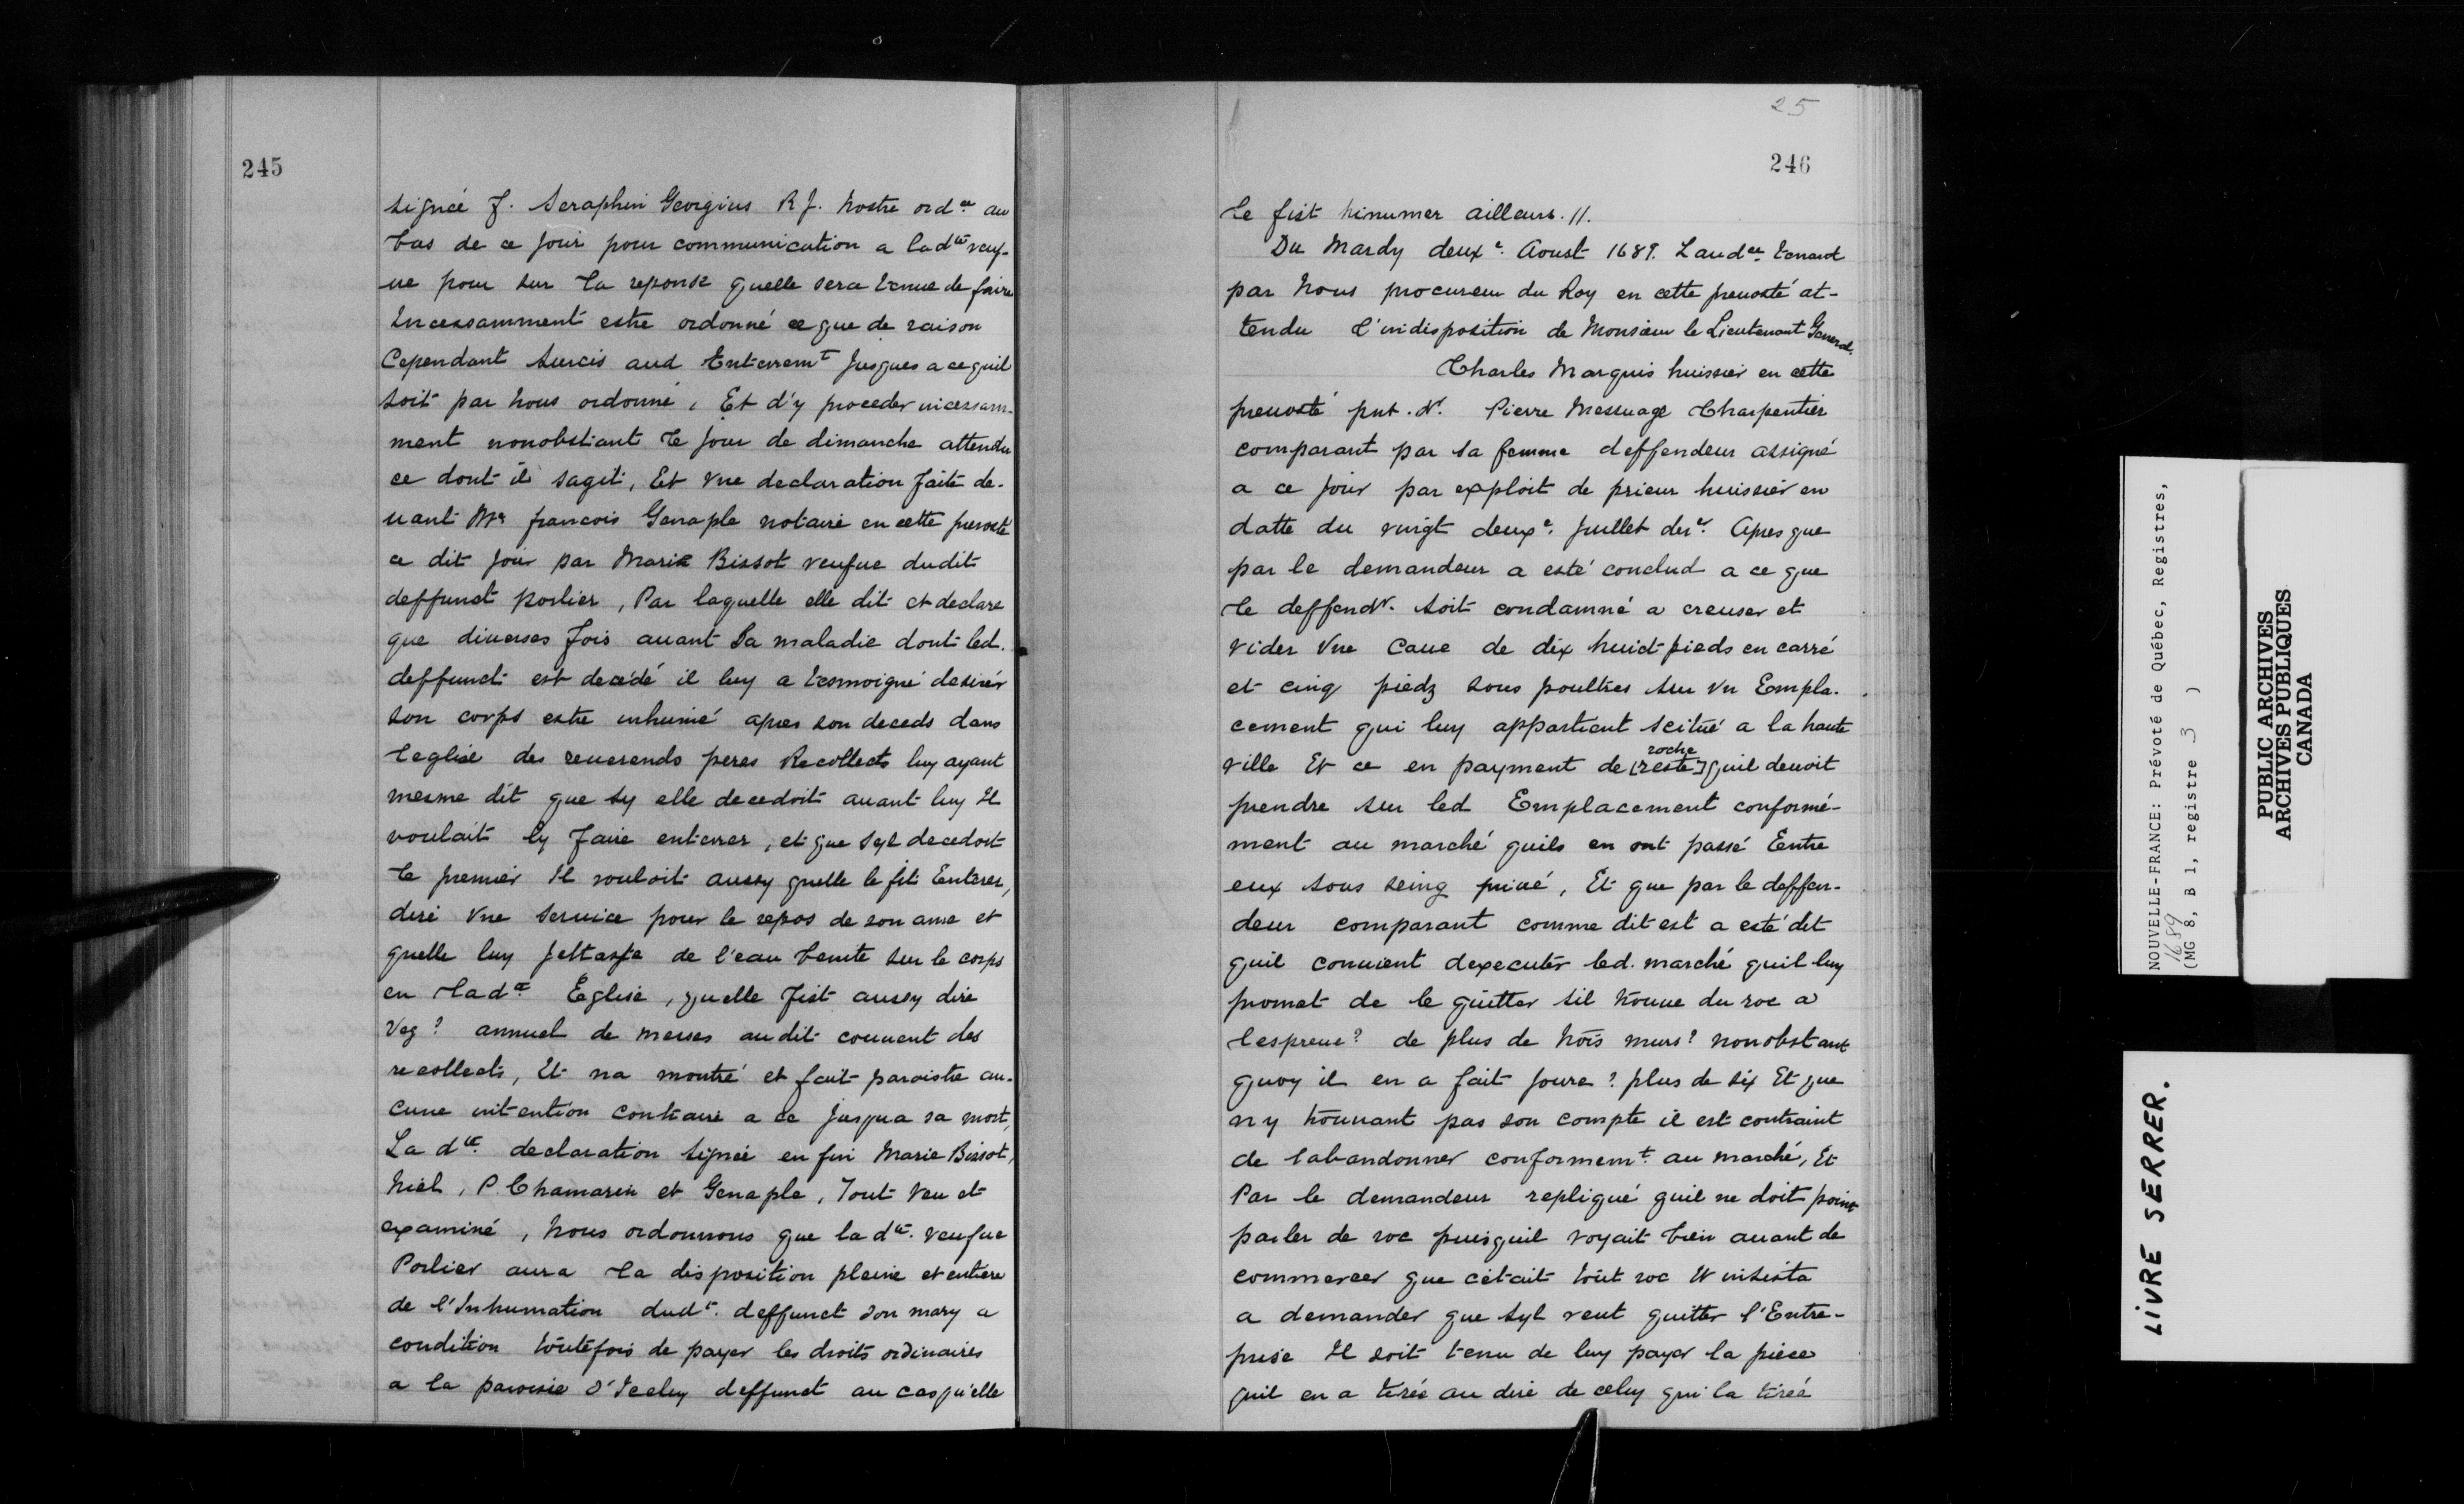 245
signée f. Seraphin Georgius R J. nostre ordce au
bas de ce jour pour communication a ladte veuf-
ue pour sur La reponse quelle sera tenue de faire
Incessamment estre ordonné ce que de raison
Cependant surcis aud Enterremt jusques a ce quil
soit par nous ordonné, Et d'y proceder incessam-
ment nonobstant Le jour de dimanche attendu
ce dont il sagit, Et vne declaration faite de-
uant Mre francois Genaple notaire en cette preuosté
ce dit jour par Marie Bissot veufue dudit
deffunct porlier, Par laquelle elle dit et declare
que diuerses fois auant La maladie dont led.
deffunct est decédé il luy a tesmoigné desirer
son corps estre inhumé apres son deceds dans
Leglise des reuerends peres Recollects luy ayant
mesme dit que sy elle decedoit auant luy Il
voulait ly faire enterrer, et que syl decedoit
Le premier Il vouloit aussy quelle le fit Enterer,
dire Vne seruice pour le repos de son ame et
quelle luy jettaste de l'eau benite sur le corps
en Ladce Eglise, quelle fist aussy dire
Veg? annuel de messes audit couuent des
recollects, Et na montré et fait paroistre au-
cune intention contraire a ce jusqua sa mort,
La dte declaration signée en fin Marie Bissot,
Niel, P. Chamaren et Genaple, Tout Veu et
examiné, Nous ordonnons que la dte. veufue
Porlier aura La disposition pleine et entiere
de l'Inhumation dudt. deffunct son mary a
condition toutefois de payer les droits ordinaires
a la paroisse d'Iceluy deffunct au cas qu'elle
25
246
Le fist hinumer ailleurs. //.
Du Mardy deuxe. Aoust 1689. Laudce tenant
par Nous procureur du Roy en cette preuosté at-
tendu l'indisposition de Monsieur le Lieutenant General.
Charles Marquis huissier en cette
preuosté pnt. dr. Pierre Messuage Charpentier
comparant par sa femme deffendeur assigné
a ce jour par exploit de prieur huissier en
datte du vingt deuxe. juillet derr. Apres que
par le demandeur a esté conclud a ce que
Le deffendr. soit condamné a creuser et
vider Vne Caue de dix huict pieds en carré
et cinq piedz sous poultres sur vn Empla-
cement qui luy appartient scitué a la haute
roche
ville Et ce en payment de [reste] quil deuoit
prendre sur led Emplacement conformé-
ment au marché quils en ont passé Eentre
eux sous seing priué, Et que par le deffen-
deur comparant comme dit est a esté dit
quil conuient dexecuter led. marché quil luy
promet de le quitter sil trouue du roc a
lespreue? de plus de trois murs? nonobstant
quoy il en a fait joure? plus de six Et que
ny trouuant pas son compte il est contraint
de labandonner conformemt. au marché, Et
Par le demandeur repliqué quil ne doit point
parler de roc puisquil voyait bien auant de
commencer que cétait tout roc Et insista
a demander que syl veut quitter l'Entre-
prise Il soit tenu de luy payer la piece
quil en a tirée au dire de celuy qui la tirée
NOUVELLE-FRANCE: Prévoté de Québec, Registres,
1689
(MG 8, B 1, registre 3 )
PUBLIC ARCHIVES
ARCHIVES PUBLIQUES
CANADA
LIVRE SERRER.